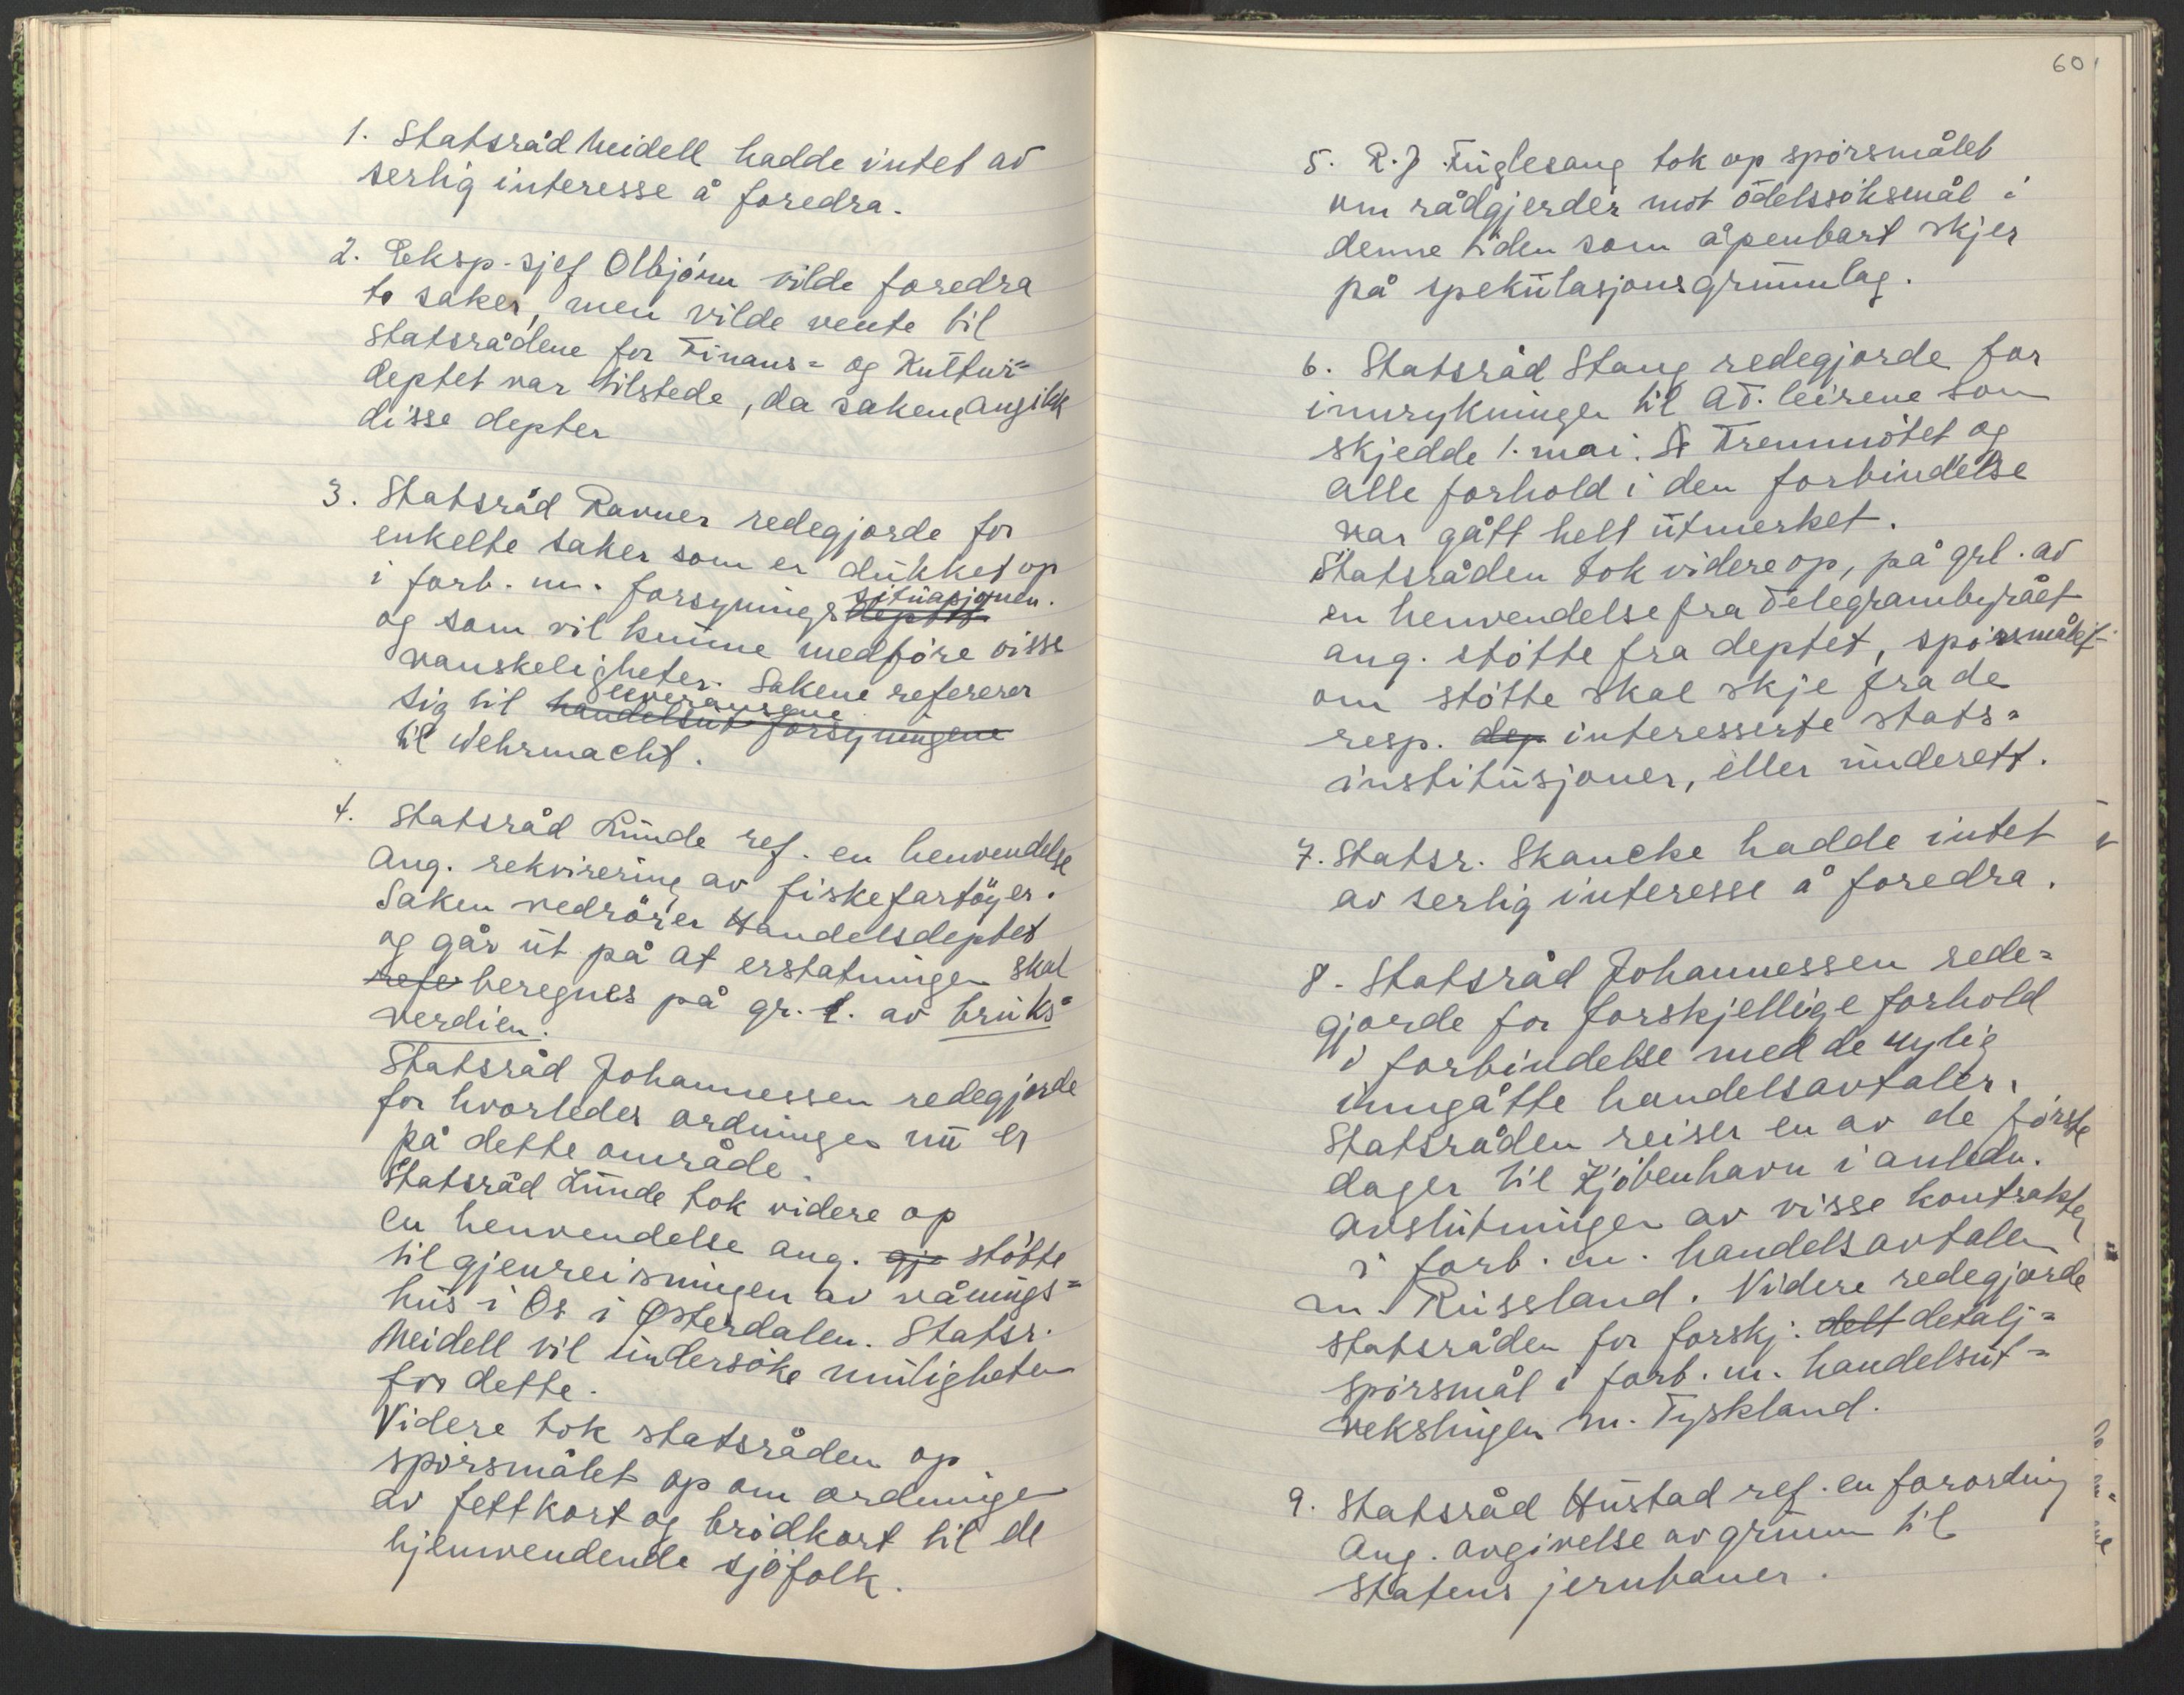 1. Statsråd Meidell hadde intet av
serlig interesse å foredra.
2. Eksp.-sjef Olbjørn vilde foredra
to saker, men vilde vente til
statsrådene for Finans= og Kultur=
deptet var tilstede, da sakene angikk
disse depter
3. Statsråd Ravner redegjorde for
enkelte saker som er dukket op
i forb. m. forsyningssituasjonen.
og som vil kunne medføre visse
vanskeligheter. Sakene refererer
sig til leveransene
til Wehrmacht.
4. Statsråd Lunde ref. en henvendelse
ang. rekvirering av fiskefartøyer.
Saken vedrører Handelsdeptet
og går ut på at erstatningen skal
refe beregnes på gr. l. av bruks=
verdien.
Statsråd Johannessen redegjorde
for hvorledes ordningen nu er
på dette område.
Statsråd Lunde tok videre op
en henvendelse ang. gje støtte
til gjenreisningen av vånings=
hus i Os i Østerdalen. Statsr.
Meidell vil undersøke muligheten
for dette.
Videre tok statsråden op
spørsmålet op om ordningen
av fettkort og brødkort til de
hjemvendende sjøfolk.
60
5. R.J. Fuglesang tok op spørsmålet
om rådgjerder mot odelssøksmål i
denne tiden som åpenbart skjer
på spekulasjonsgrunnlag.
6. Statsråd Stang redegjorde for
innrykningen til AT. leirene som
skjedde 1. mai. Fremmøtet og
alle forhold i den forbindelse
var gått helt utmerket.
Statsråden tok videre op, på grl. av
en henvendelse fra Telegrambyrået
ang. støtte fra deptet, spørsmålet
om støtte skal skje fra de
resp. dep interesserte stats=
institusjoner, eller underett.
7. Statsr. Skancke hadde intet
av serlig interesse å foredra.
8. Statsråd Johannessen rede=
gjorde for forskjellige forhold
i forbindelse med de nylig
inngåtte handelsavtaler.
Statsråden reiser en av de første
dager til Kjøbenhavn i anledn.
avslutningen av visse kontrakter
i forb. m. handelsavtalen
m. Russland. Videre redegjorde
statsråden for forskj. delt detalj=
spørsmål i forb. m. handelsut=
vekslingen m. Tyskland.
9. Statsråd Hustad ref. en forordning
ang. avgivelse av grunn til
statens jernbaner.